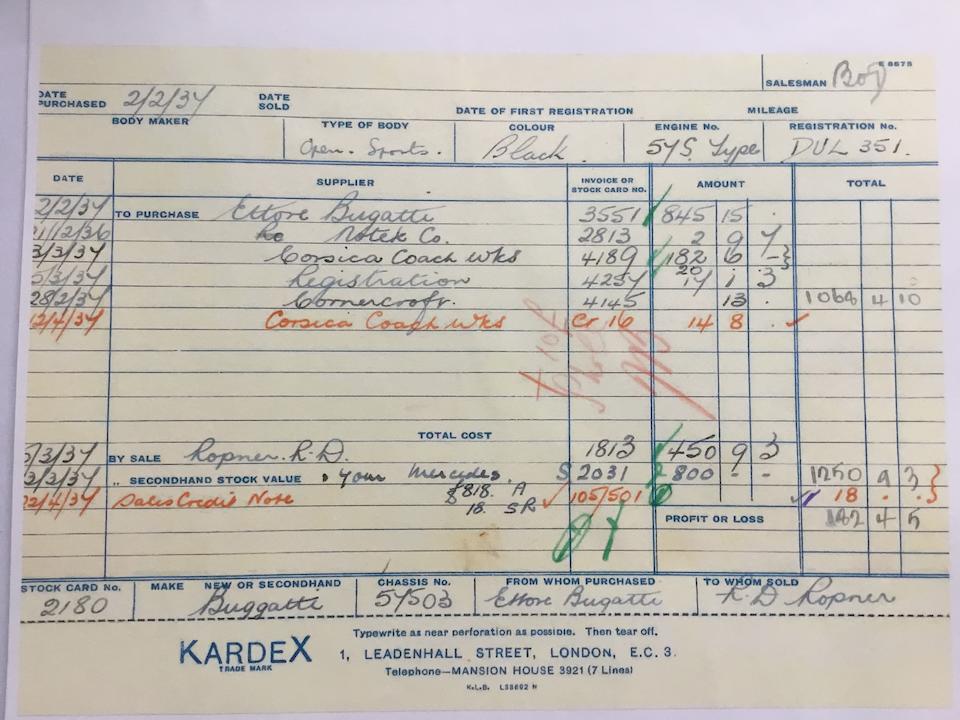 E 8675
SALESMAN Boy
DATE PURCHASED 2/2/37 DATE SOLD DATE OF FIRST REGISTRATION MILEAGE
BODY MAKER TYPE OF BODY COLOUR ENGINE No. REGISTRATION No.
Open. Sports. Black. 57S. Type DUL 351.
DATE SUPPLIER INVOICE OR STOCK CARD NO. AMOUNT TOTAL
2/2/37 TO PURCHASE Ettore Bugatti 3551 845 15 .
/12/36 Notek Co. 2813 2 9 7
3/3/37 Corsica Coach Wks 4189 182 6 -
5/3/37 Registration 4257 1 3
28/2/37 Cornercroft. 4145 13 . 1068 4 10
12/4/37 Corsica Coach Wks Cr 16 14 8 .
TOTAL COST
5/3/37 BY SALE Ropner. R.D. 1813 450 9 3
3/3/37 " SECONDHAND STOCK VALUE Your Mercedes. S 2031 800 - - 1250 9 3
22/4/37 Sales Credit Note 818. A 105/501 18 . .
SR
PROFIT OR LOSS 182 4 5
STOCK CARD No. MAKE NEW OR SECONDHAND CHASSIS No. FROM WHOM PURCHASED TO WHOM SOLD
2180 Buggatti 57503 Ettore Bugatti R.D Ropner
Typewrite as near perforation as possible. Then tear off.
KARDEX 1, LEADENHALL STREET, LONDON, E.C. 3.
TRADE MARK Telephone—MANSION HOUSE 3921 (7 Lines)
K.L.B. L38692 N